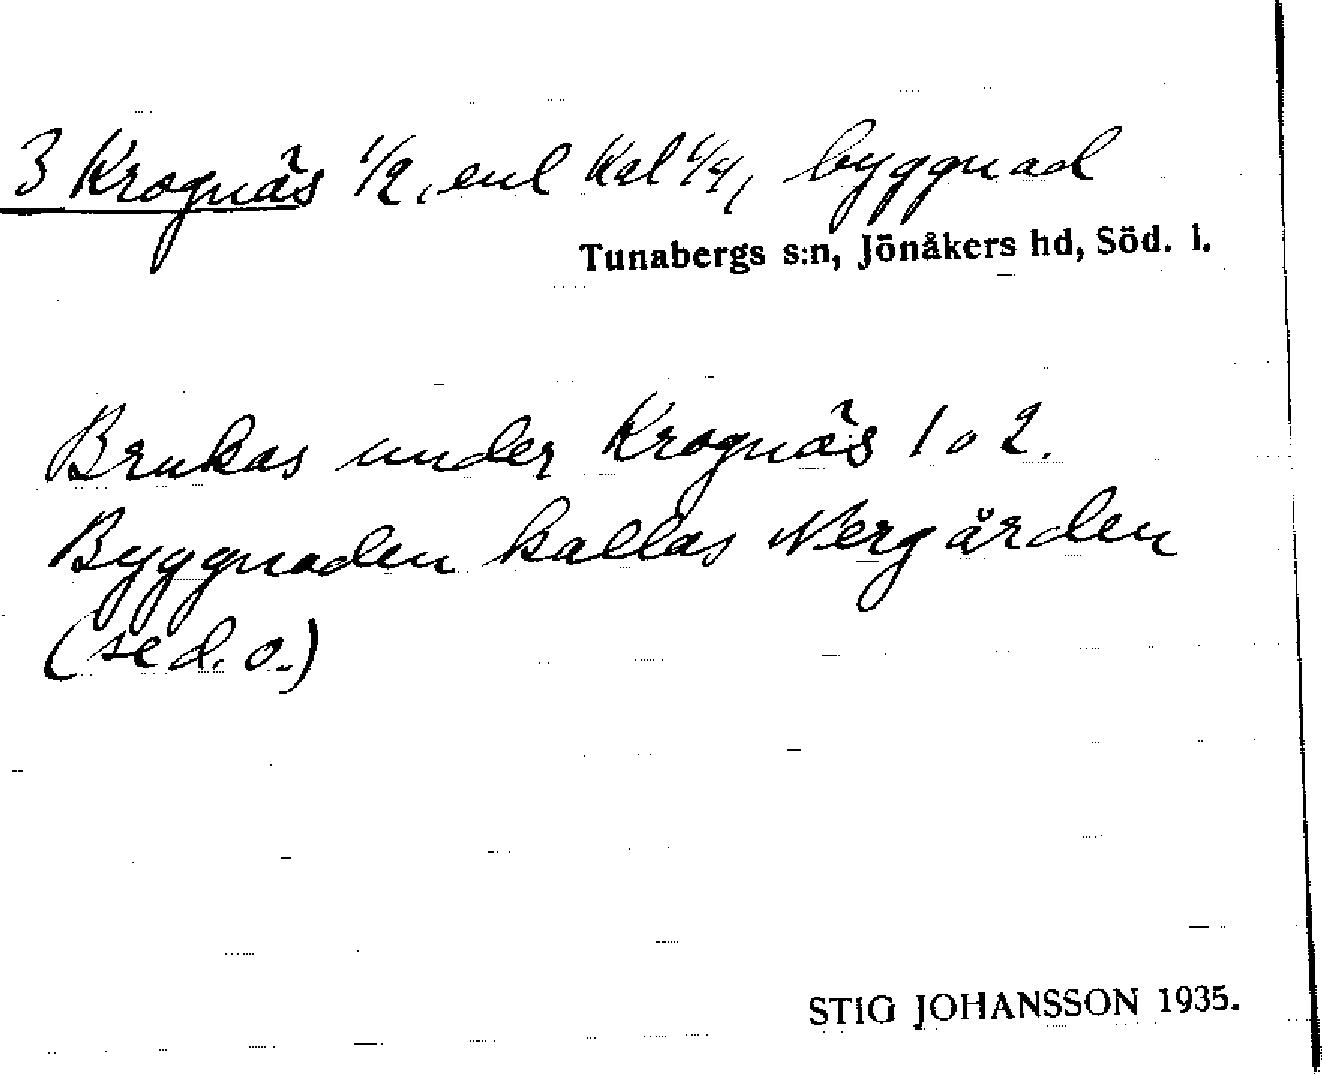 3 Krognäs 1/2, enl Kal 1/4, byggnad
Tunabergs s:n, Jönåkers hd, Söd. l.
Brukas under Krognäs 1 o 2.
Byggnaden kallas Nergården
(se d. o.)
STIG JOHANSSON 1935.